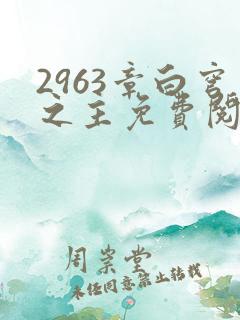 2963章白宫
之主免費閱
周崇堂
未经同意禁止转载